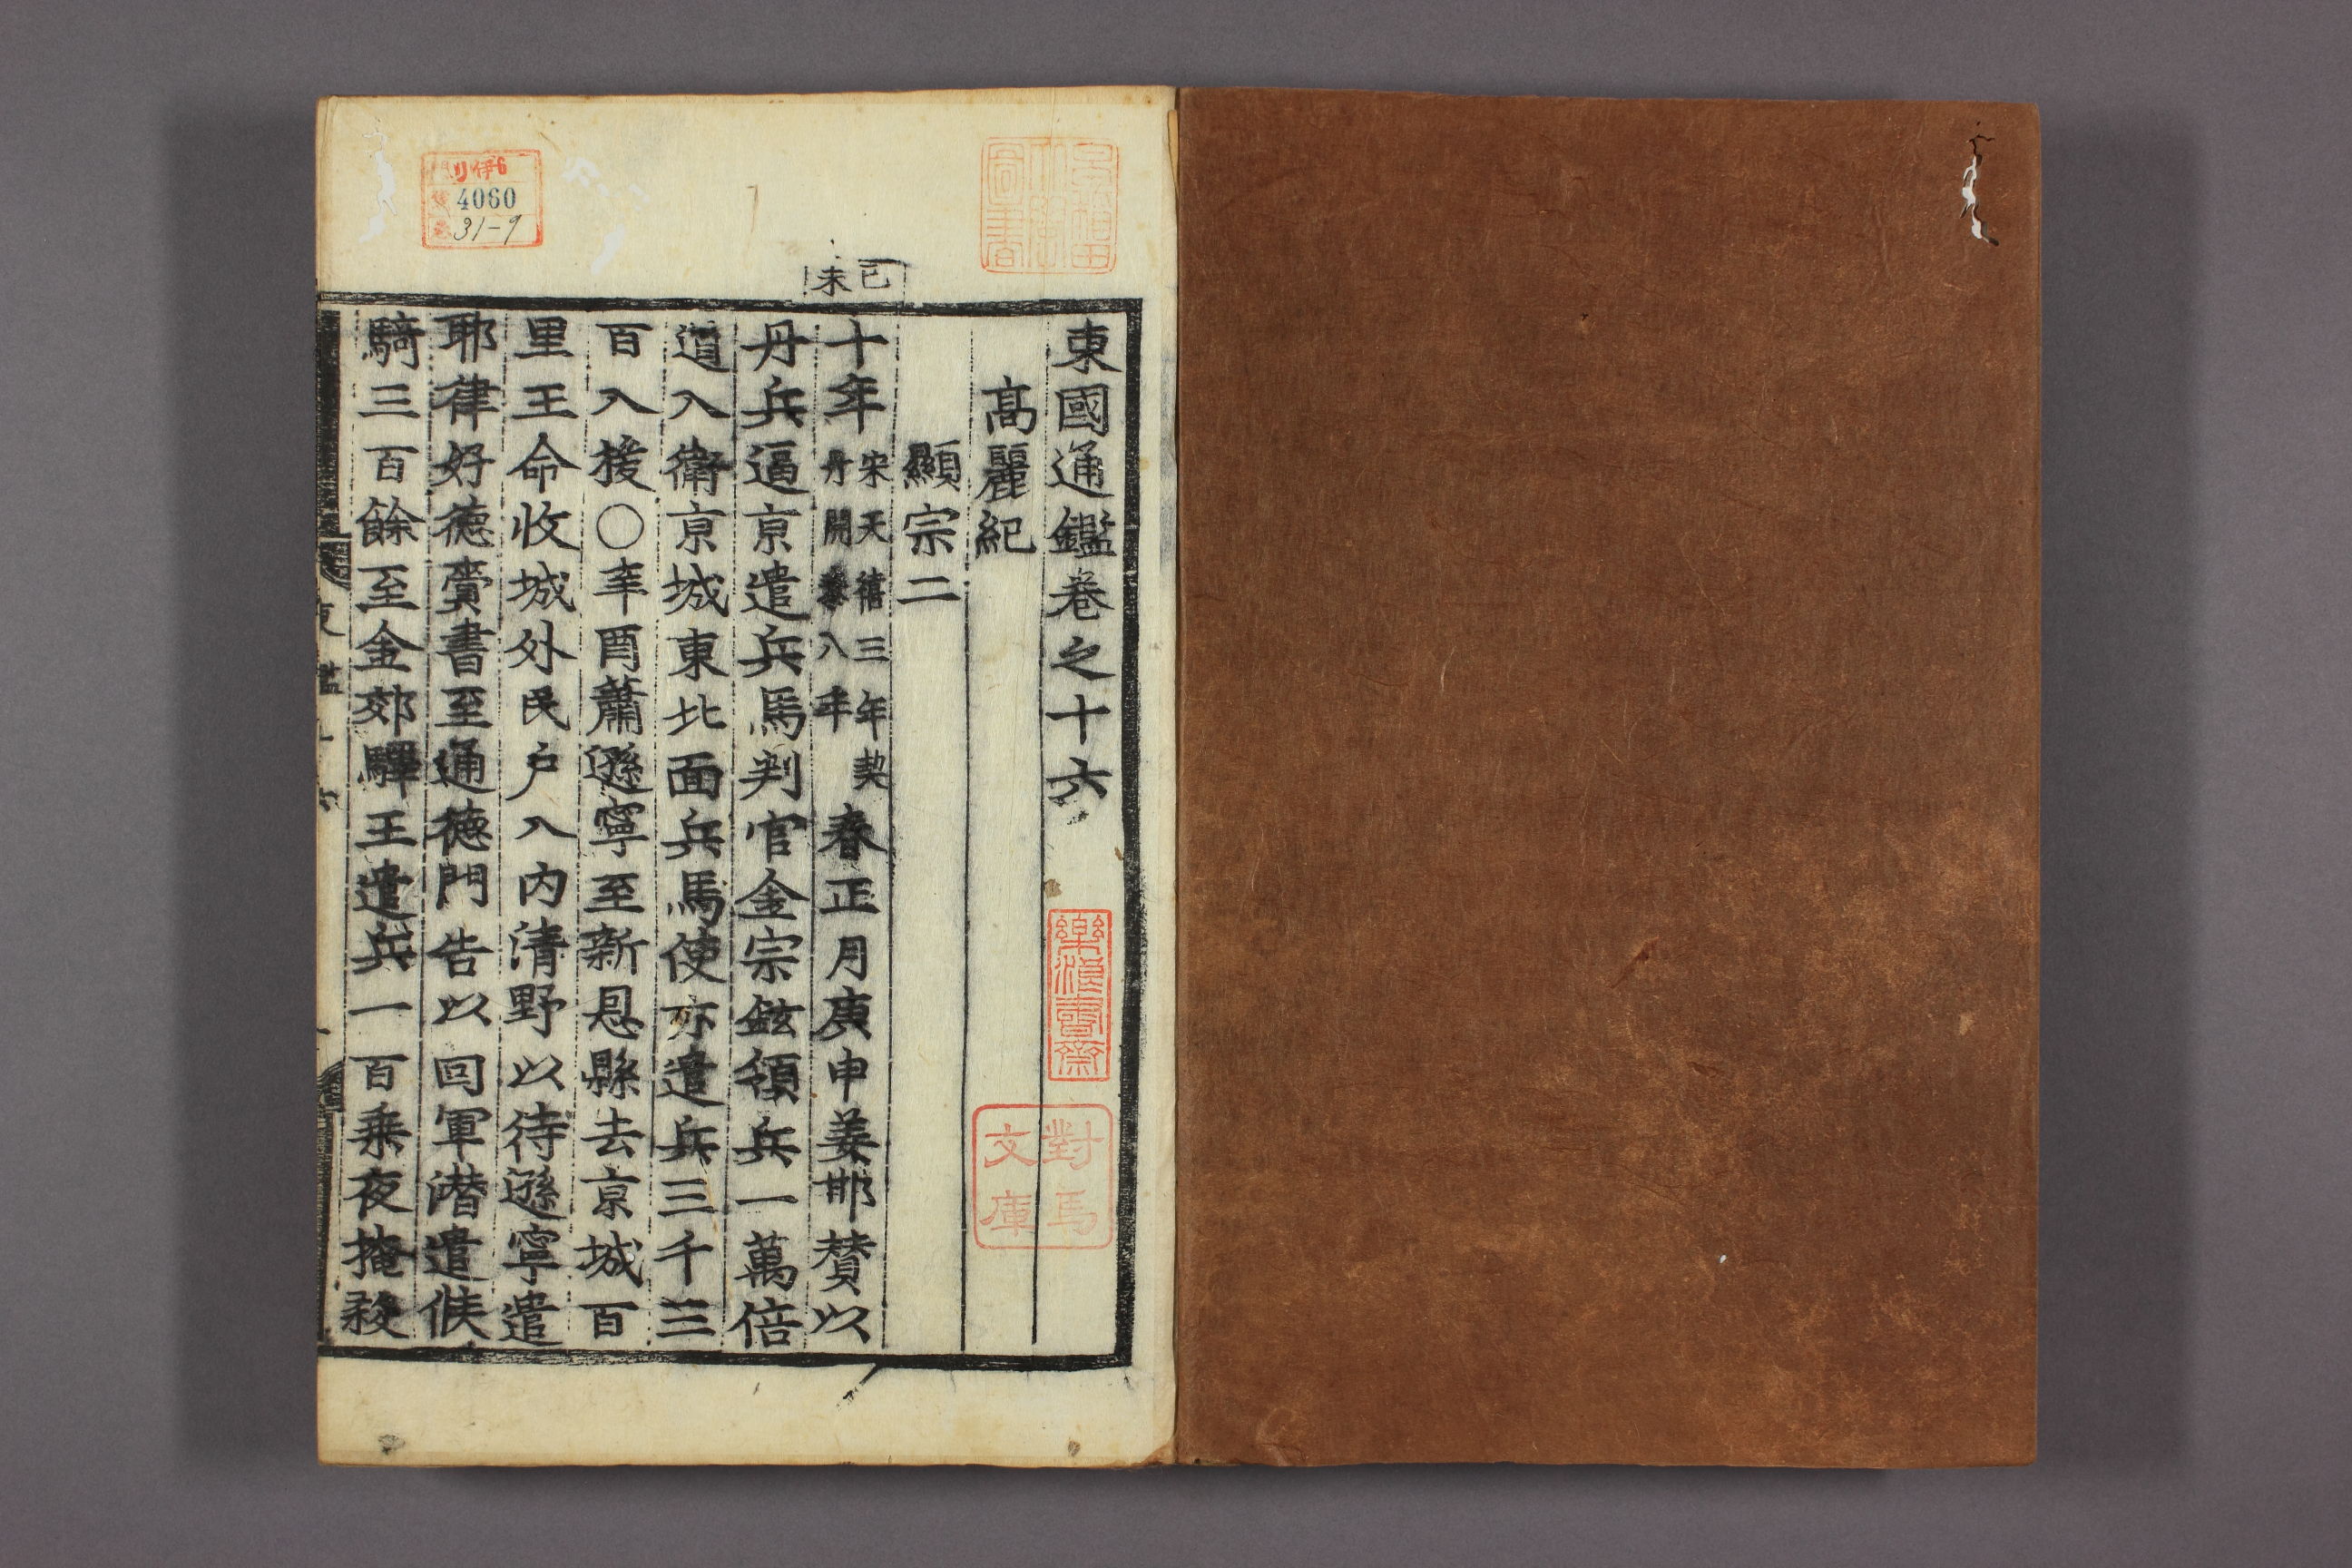 東國通鑑卷之十六
高麗紀
顯宗二
己未
十年宋天禧三年契丹開泰八年春正月庚申姜邯賛以
丹兵逼亰遣兵馬判官金宗鉉領兵一萬倍
道入衛亰城東北面兵馬使亦遣兵三千三
百入援○辛酉蕭遜寧至新恩縣去亰城百
里王命收城外民戶入內清野以待遜寧遣
耶律好德賫書至通德門告以回軍潜遣候
騎三百餘至金郊驛王遣兵一百乘夜掩殺
樂浪書齋
對馬
文庫
伊6
4060
31-9